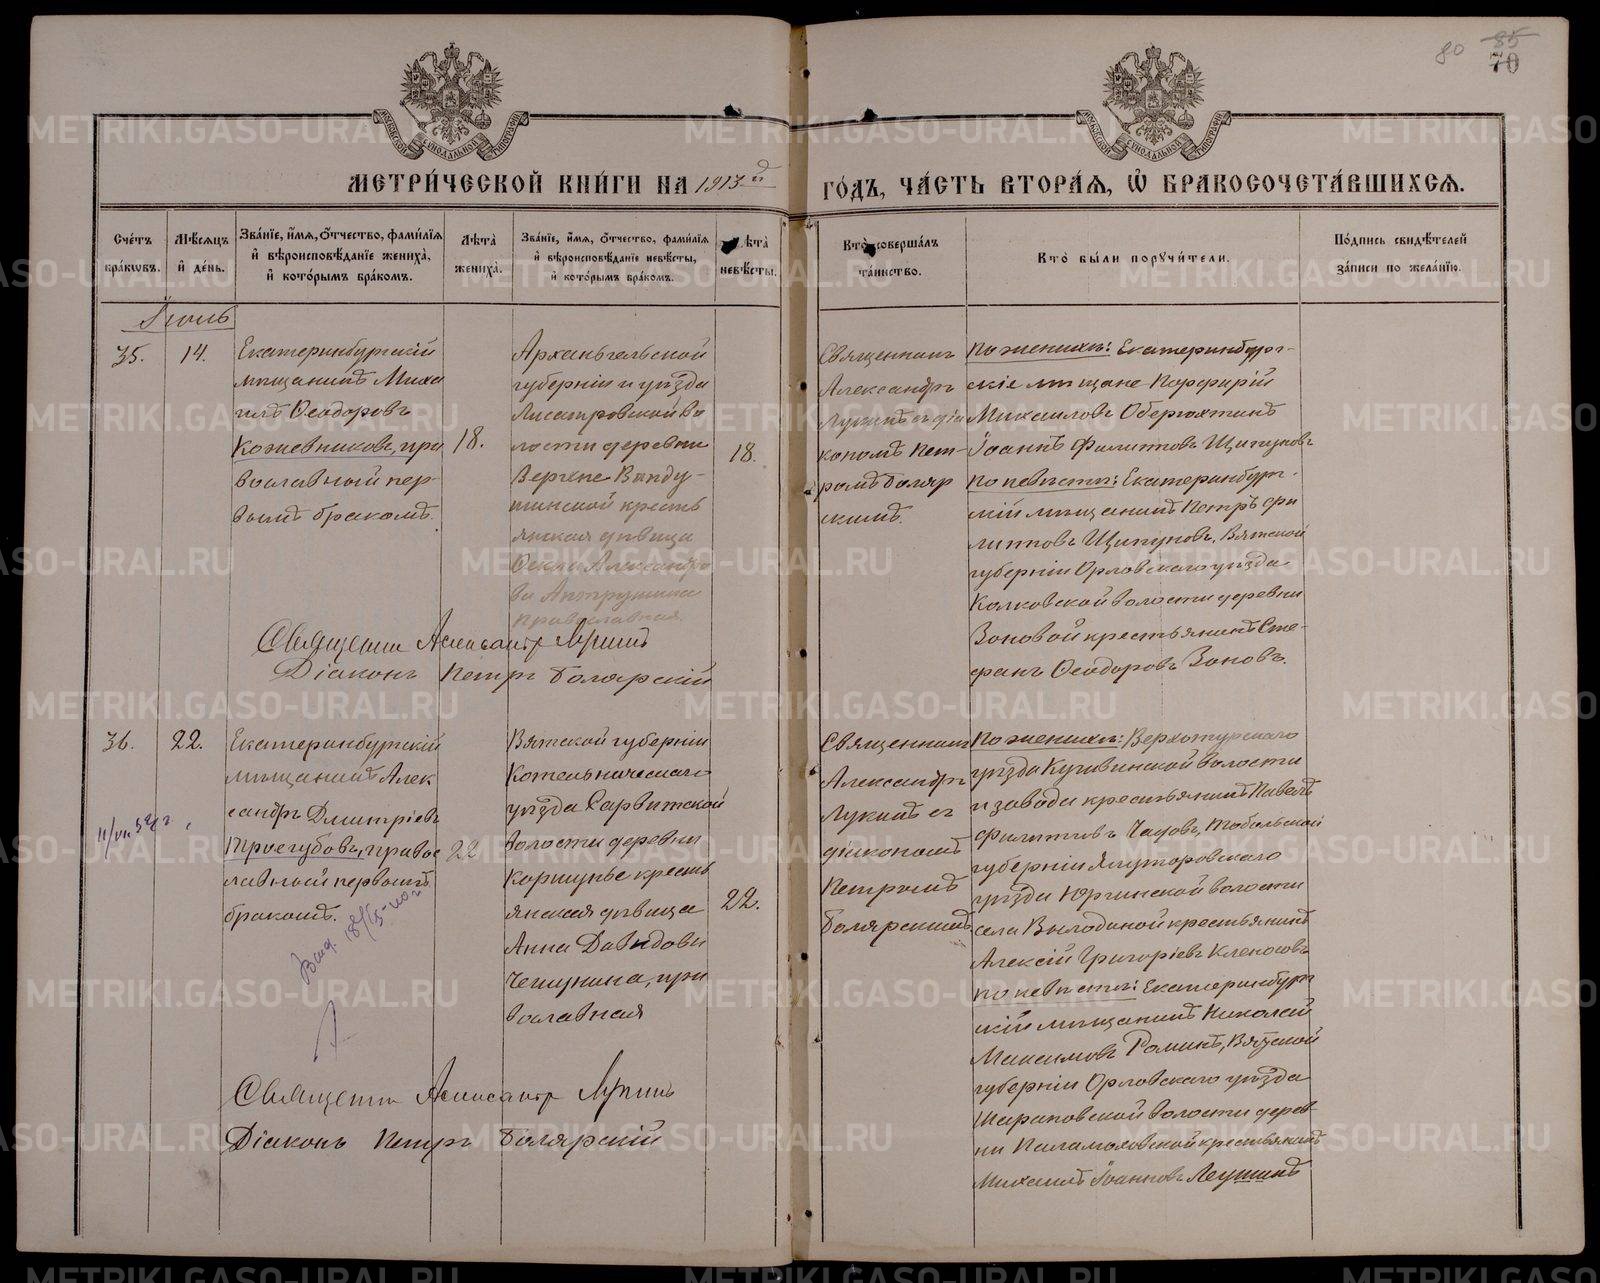 80 85
70
МОСКОВСКОЙ СѴНОДАЛЬНОЙ ТИПОГРАФІИ
МОСКОВСКОЙ СѴНОДАЛЬНОЙ ТИПОГРАФІИ
МЕТРИ́ЧЕСКОЙ КНИ́ГИ НА 1913й
ГО́ДЪ, ЧА́СТЬ ВТОРА́Я, Ѡ҆ БРАКОСОЧЕТА́ВШИХСЯ.
Сче́тъ бра́кωвъ.
Мѣ́сяцъ и҆ де́нь.
Зва́нїе, и҆́мя, ѻ҆́тчество, фами́лїя
и҆ вѣроисповѣ́данїе жениха̀,
и҆ кото́рымъ бра́комъ.
Лѣ́та жениха̀.
Зва́нїе, и҆́мя, ѻ҆́тчество, фами́лїя
и҆ вѣроисповѣ́данїе невѣ́сты,
и҆ кото́рымъ бра́комъ.
Лѣ́та невѣ́сты.
Кто̀ соверша́лъ
та́инство.
Кто̀ бы́ли поручи́тели.
По́дпись свидѣ́телей
за́писи по жела́нїю.
Іюль
35.
14.
Екатеринбургскій
мѣщанинъ Миха
илъ Ѳеодоровъ
Кожевниковъ, пра
вославный пер-
вымъ бракомъ.
18.
Архангельской
губерніи и уѣзда
Лисестровской во
лости деревни
Верхне
крестьянская дѣвица
Ѳекла Александро
ва Антрушина
православная
18.
Священникъ
Александръ
Лукинъ съ діа
кономъ Пет-
ромъ Боляр
скимъ.
По женихѣ: Екатеринбург-
скіе мѣщане Порфирій
Михаиловъ Оберюхтинъ
Іоаннъ Филипповъ Щипуновъ
по невѣстѣ: Екатеринбург-
скій мѣщанинъ Петръ Фи
липповъ Щипуновъ, Вятской
губерніи Орловскаго уѣзда
Колковской волости деревни
Зоновой крестьянинъ Сте-
фанъ Ѳеодоровъ Зоновъ.
Священникъ Александръ Лукинъ
Діаконъ Петръ Болярскій
36.
22.
Екатеринбургскій
мѣщанинъ Алек
сандръ Дмитріевъ
Трегубовъ, правос
лавный первымъ
бракомъ.
22
Вятской губерніи
Котельническаго
уѣзда Сарвитской
волости деревни
Коршунье кресть
янская дѣвица
Анна Давидова
Чешунина, пра
вославная
22.
Священникъ
Александръ
Лукинъ съ
діакономъ
Петромъ
Болярскимъ
По женихѣ: Верхотурскаго
уѣзда Кушвинской волости
и завода крестьянинъ Павелъ
Филипповъ Чадовъ, Тобольской
губерніи Ялуторовскаго
уѣзда Юргинской волости
села крестьянинъ
Алексій Григоріевъ
по невѣстѣ: Екатеринбург
скій мѣщанинъ Николай
Максимовъ Роминъ, Вятской
губерніи Орловскаго уѣзда
Шараповской волости дерев-
ни Паламоховской крестьянинъ
Михаилъ Іоанновъ Леушинъ
Священникъ Александръ Лукинъ
Діаконъ Петръ Болярскій
METRIKI.GASO-URAL.RU